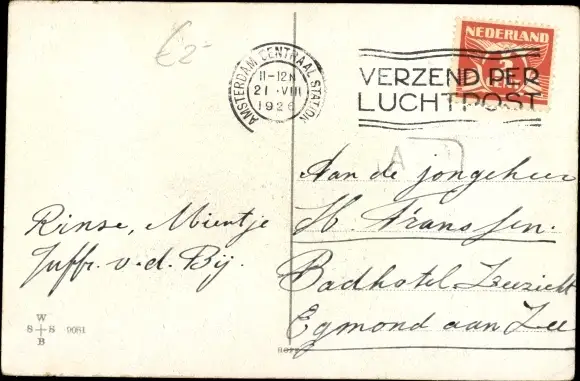 €2-
AMSTERDAM CENTRAAL STATION
11-12N
21 VIII
1926
VERZEND PER
LUCHTPOST
NEDERLAND
A
Aan de jongeheer
H. Franssen.
Badhotel Zeezicht
Egmond aan Zee
Rinse, Mientje
Juffr. v.d. Bij.
W
S S 9081
B